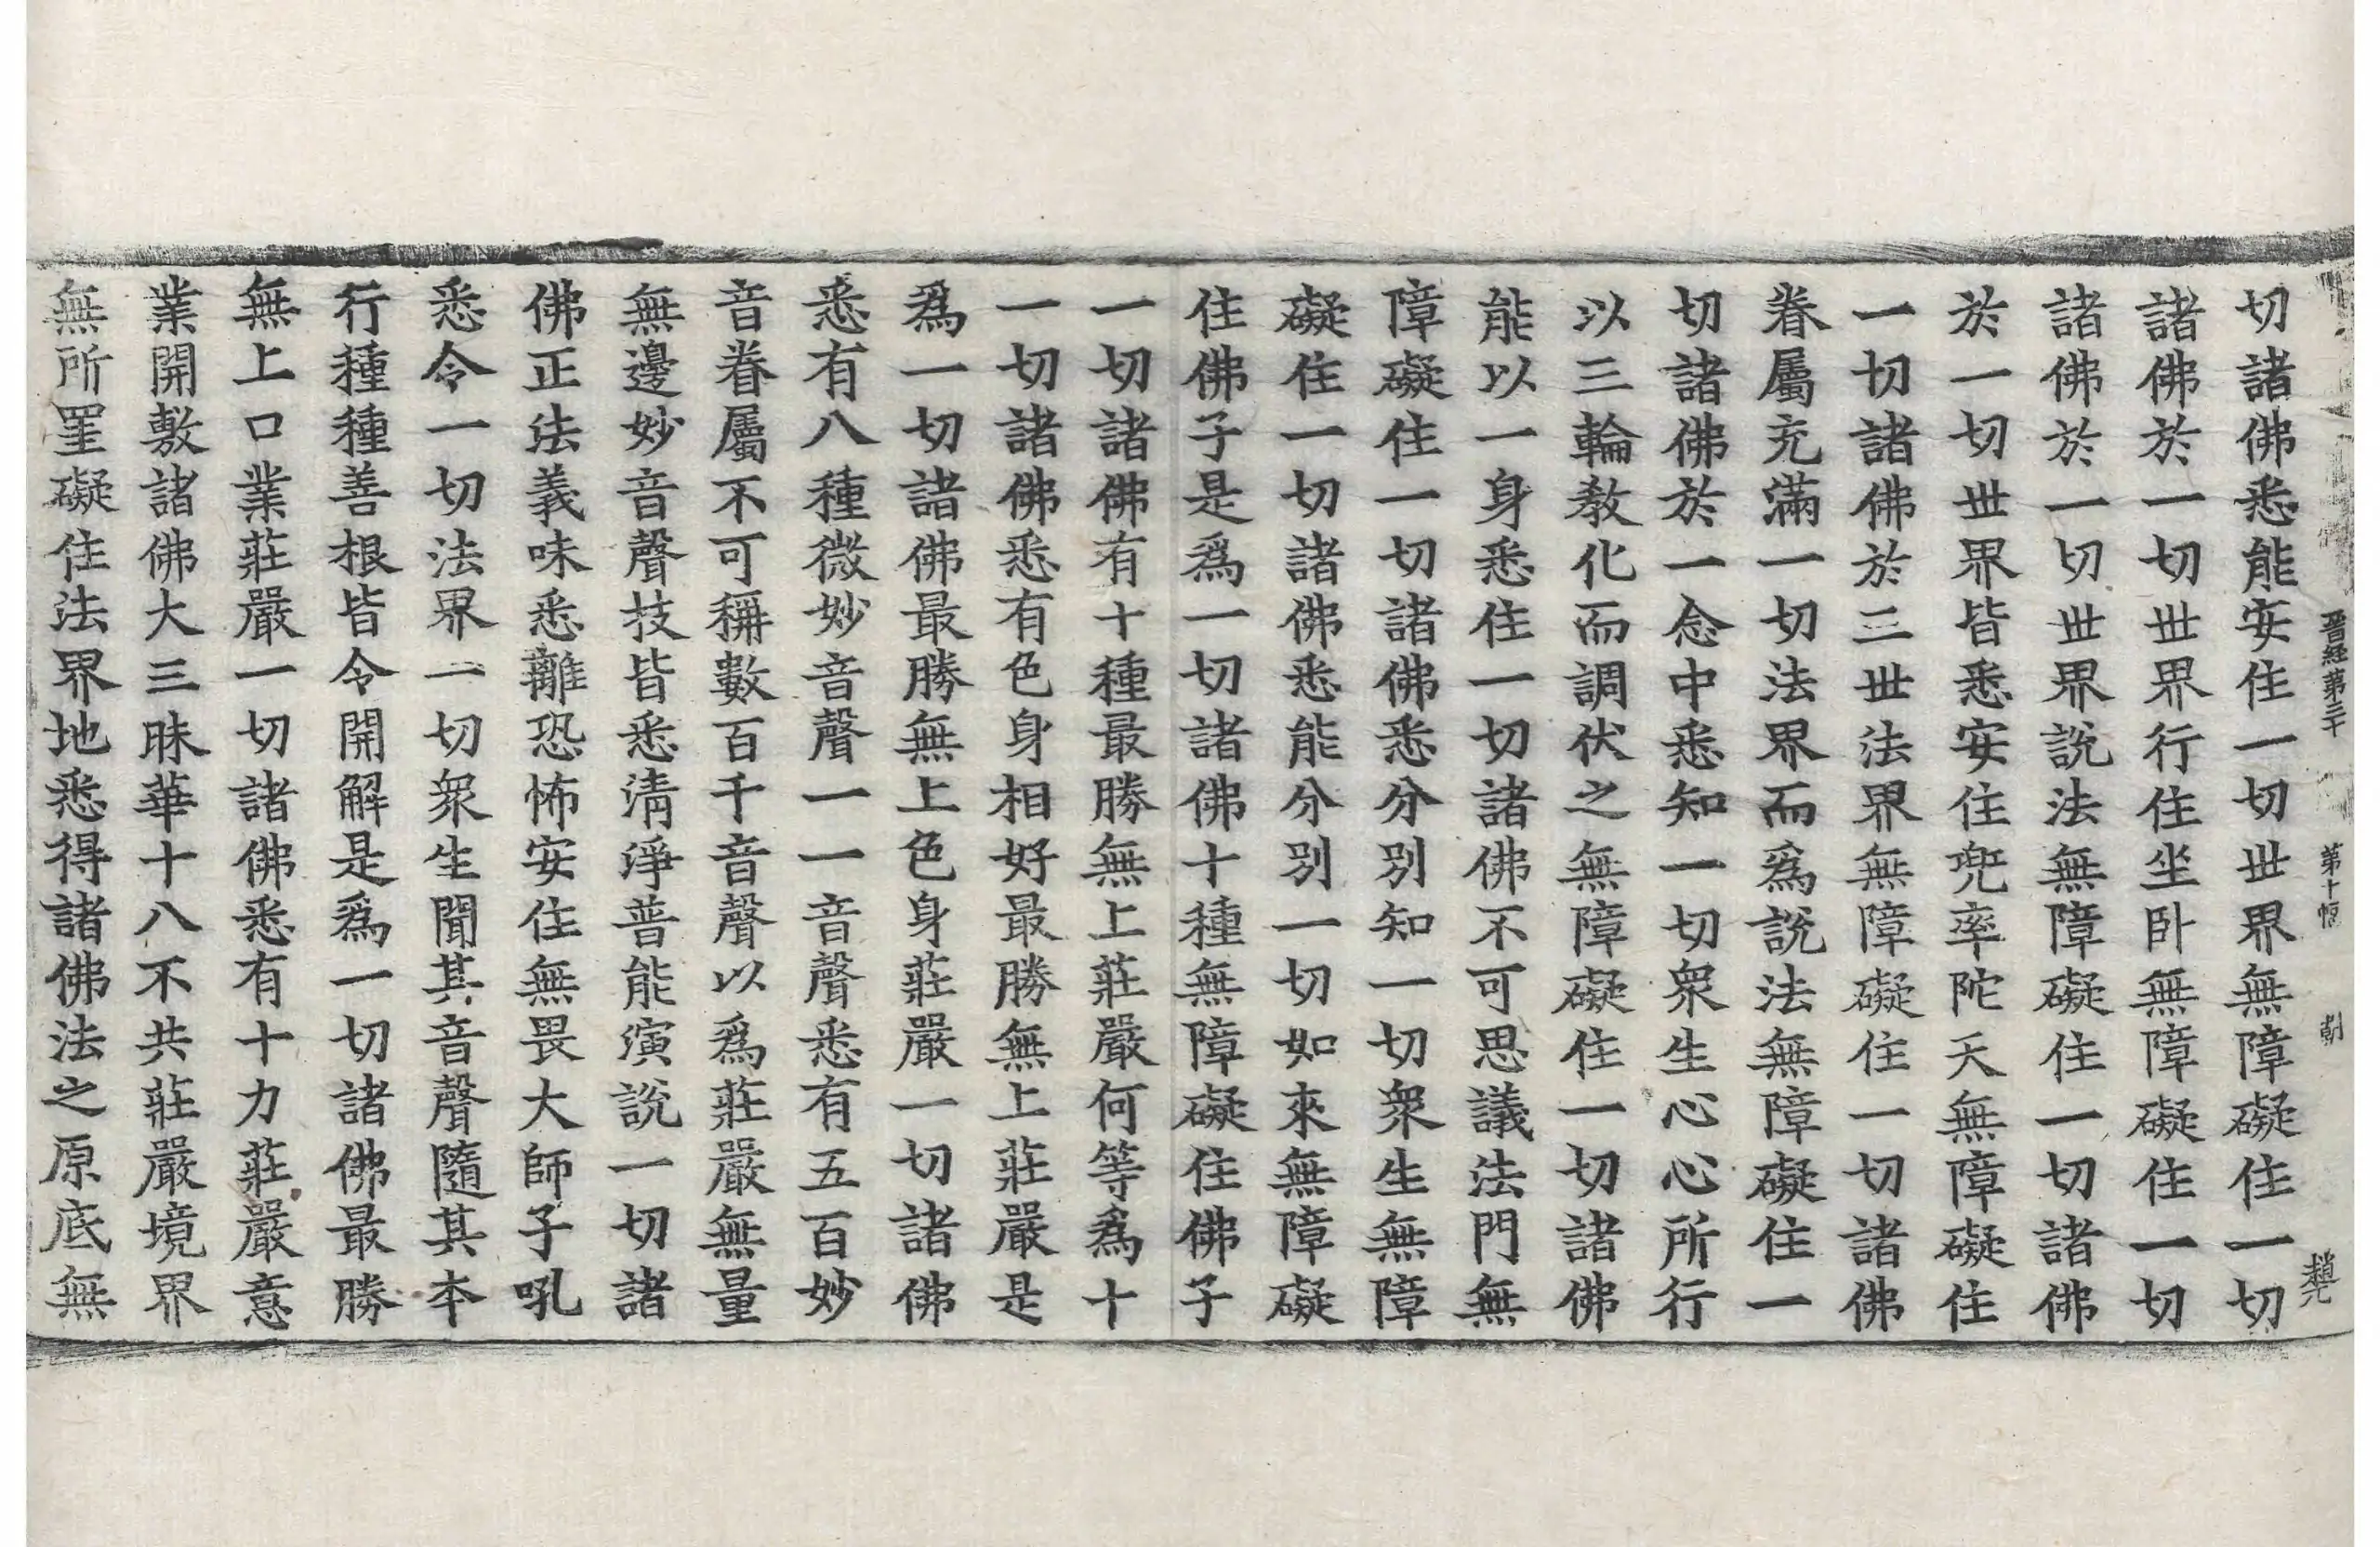 晋經第三十 第十 趙
切諸佛悉能安住一切世界無障礙住一切
諸佛於一切世界行住坐卧無障礙住一切
諸佛於一切世界說法無障礙住一切諸佛
於一切世界皆悉安住兜率陀天無障礙住
一切諸佛於三世法界無障礙住一切諸佛
眷屬充滿一切法界而爲說法無障礙住一
切諸佛於一念中悉知一切衆生心心所行
以三輪教化而調伏之無障礙住一切諸佛
能以一身悉住一切諸佛不可思議法門無
障礙住一切諸佛悉分別知一切衆生無障
礙住一切諸佛悉能分別一切如來無障礙
住佛子是爲一切諸佛十種無障礙住佛子
一切諸佛有十種最勝無上莊嚴何等爲十
一切諸佛悉有色身相好最勝無上莊嚴是
爲一切諸佛最勝無上色身莊嚴一切諸佛
悉有八種微妙音聲一一音聲悉有五百妙
音眷屬不可稱數百千音聲以爲莊嚴無量
無邊妙音聲技皆悉清淨普能演說一切諸
佛正法義味悉離恐怖安住無畏大師子吼
悉令一切法界一切衆生聞其音聲隨其本
行種種善根皆令開解是爲一切諸佛最勝
無上口業莊嚴一切諸佛悉有十力莊嚴意
業開敷諸佛大三昧華十八不共莊嚴境界
無所罣礙住法界地悉得諸佛法之原底無